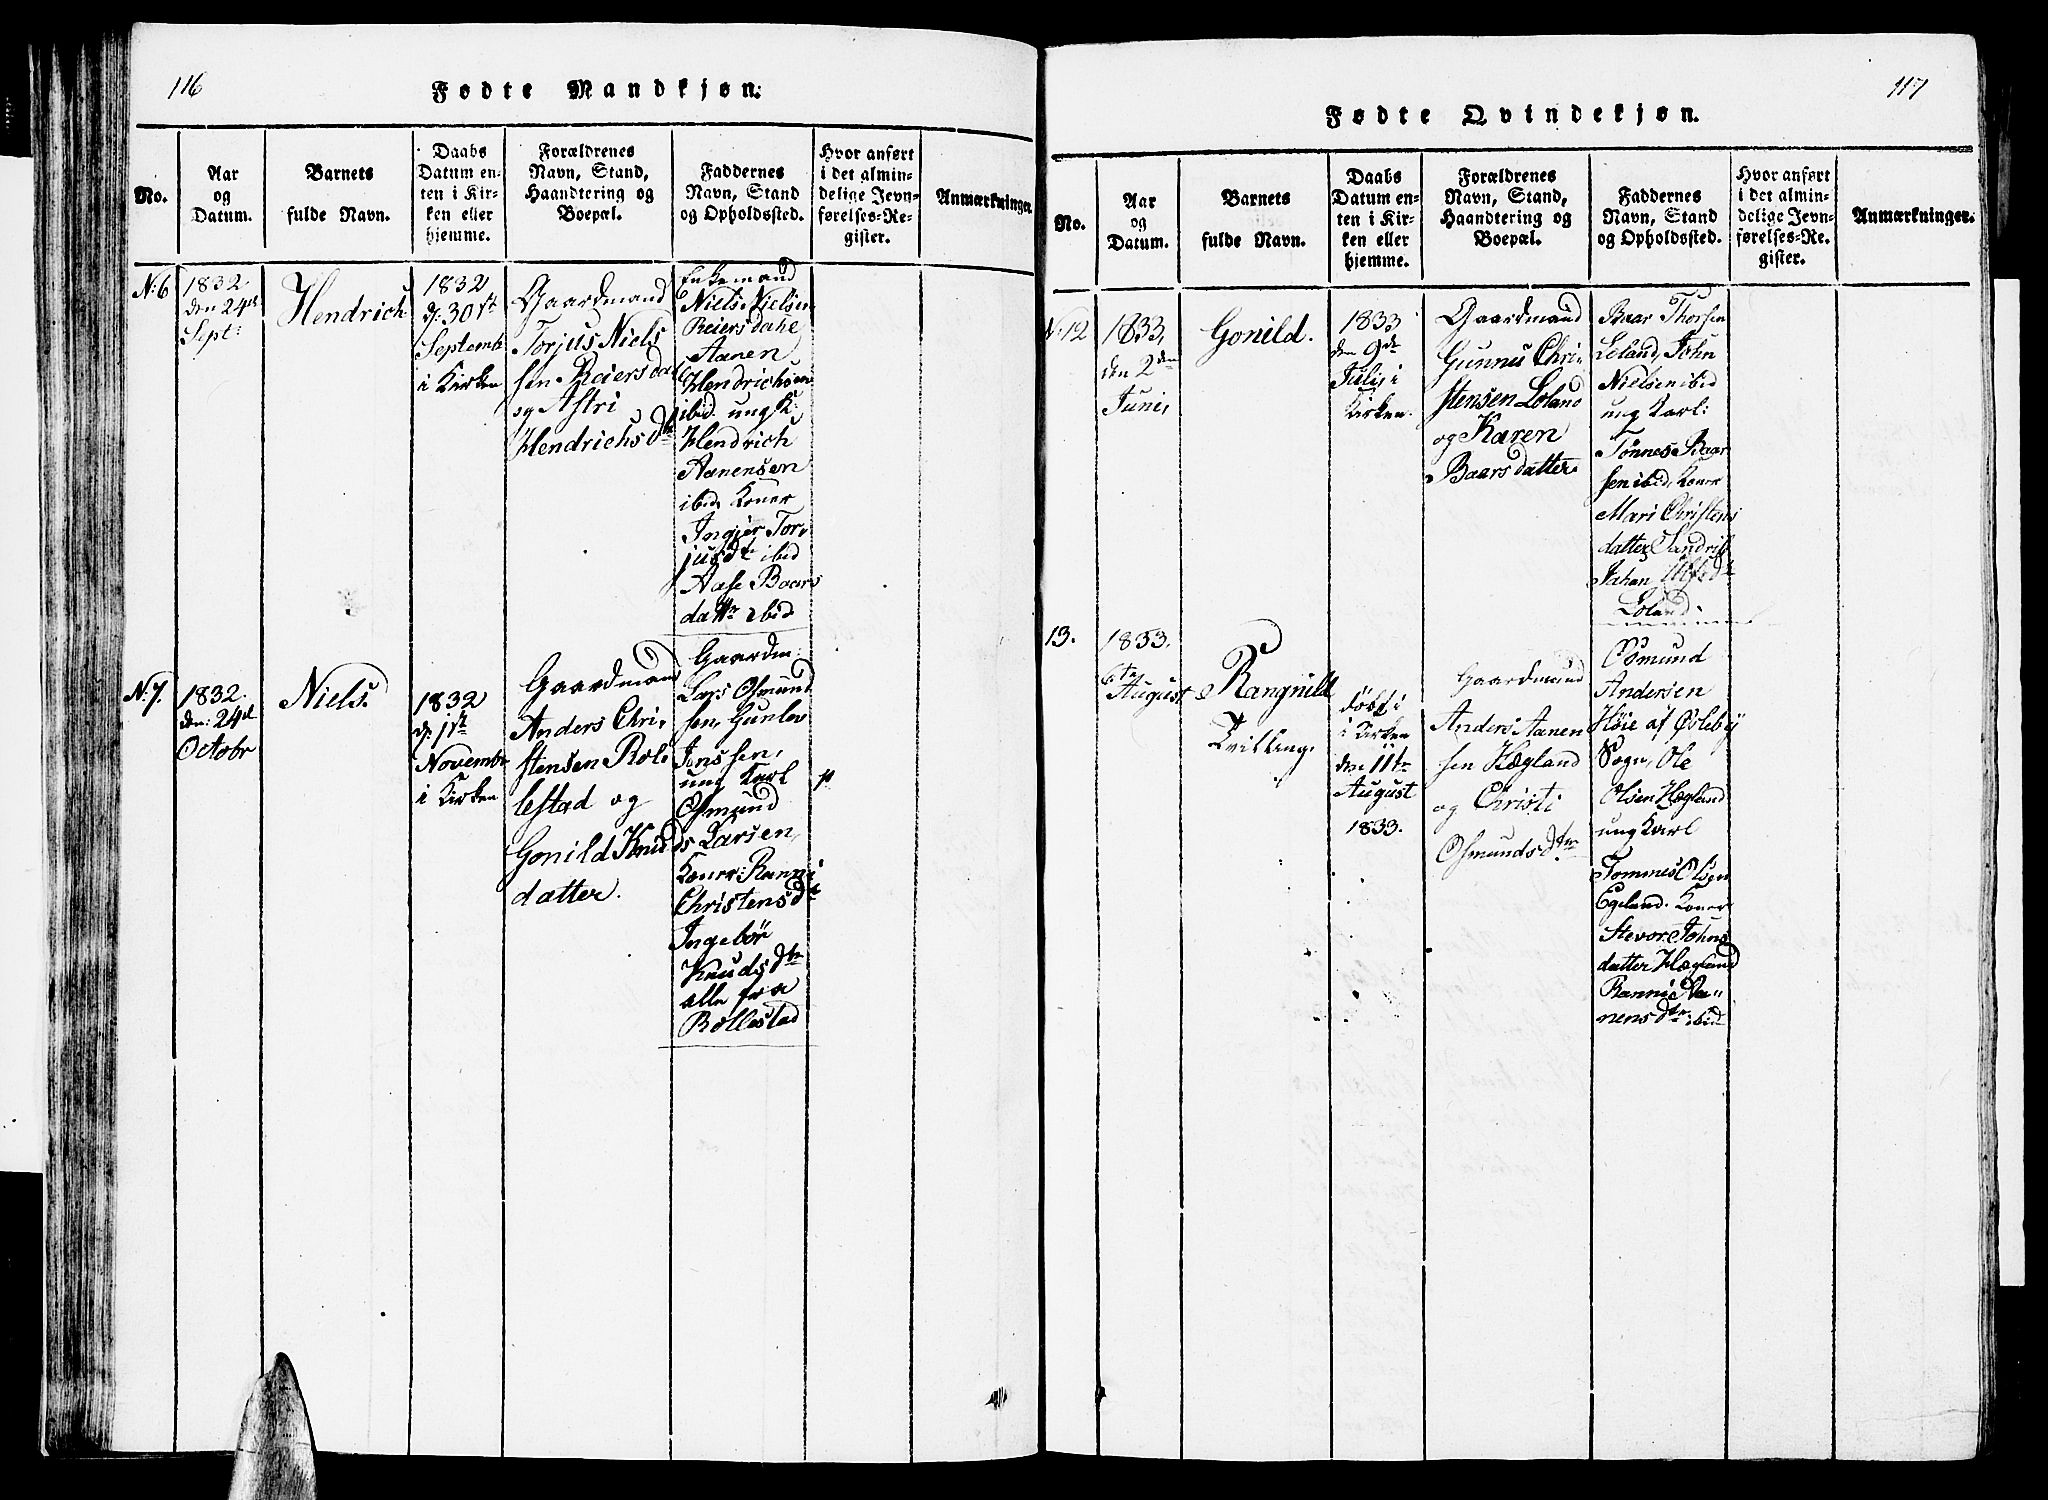 116
Fødte Mandkjøn.
No.
Aar
og
Datum.
Barnets
fulde Navn.
Daabs
Datum en-
ten i Kir-
ken eller
hjemme.
Forældrenes
Navn, Stand,
Haandtering og
Boepæl.
Faddernes
Navn, Stand
og Opholdssted.
Hvor anført
i det almin-
delige Jevn-
førelses-Re-
gister.
Anmærkninger.
N: 6
1832
den 24de
Sept:
Hendrich
1832
d: 30te
Septemb
i Kirken
Gaardmand
Torjus Niels
sen Reiersdal
og Astri
Hendrichsdtr
Enkemand
Niels Nielsen
Reiersdahl
Aanen
Hendrichsen
ibid. ung K:
Hendrich
Aanensen
ibid, Koner
Ingier Tor,
jusdt ibid
Aase Baars
dattr ibid
N: 7.
1832.
den: 24de
Octobr
Niels.
1832
d: 1ste
Novembr
i Kirken
Gaardmand
Anders Chri,
stensen Rol,
lestad og
Gonild Knuds
datter.
Gaardm:
Lars Osmund
sen, Gunlev
Jenssen,
ung Karl
Osmund
Larsen,
Koner: Ranni
Christensdt
Ingebör
Knudsdtr
alle fra
Rollestad
117
Fødte Qvindekjøn.
No.
Aar
og
Datum.
Barnets
fulde Navn.
Daabs
Datum en-
ten i Kir-
ken eller
hjemme.
Forældrenes
Navn, Stand,
Haandtering og
Boepæl.
Faddernes
Navn, Stand
og Opholdssted.
Hvor anført
i det almin-
delige Jevn-
førelses-Re-
gister.
Anmærkninger.
N: 12
1833,
den 2den
Juni,
Gonild.
1833
den 9de
Juli, i
Kirken.
Gaardmand
Gunnu Chri,
stensen Loland
og Karen
Baarsdatter
Baar Thorsen
Loland, John
Nielsen ibid
ung Karl:
Tønnes Baar
sen ibid, Koner
Mari Christens
datter
Loland.
13.
1833.
6te
August
Rangnild
Tvilling.
döbt i
i Kirken
den 11te
August
1833.
Gaardmand
Anders Aanen
sen Hægland
og Christi
Osmundsdtr
Osmund
Andersen
Høie af Øslebÿ
Sogn, Ole
Olsen Hægland
ung Karl
Tommes Olsen
Egeland. Koner
Stevor Johns
datter Hægland
Rannie Aa,,
nensdtr ibid